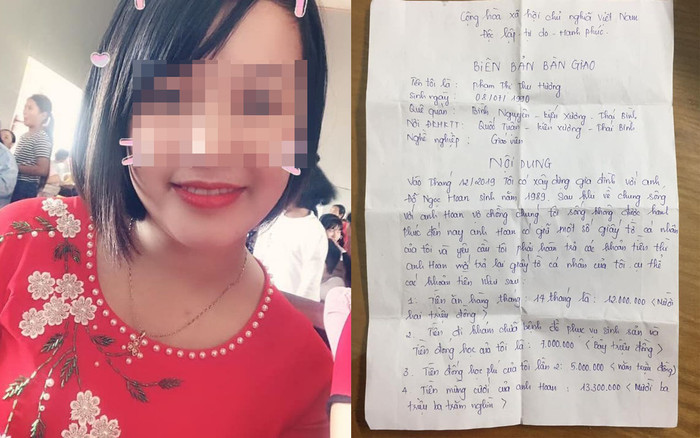 Cộng hòa xã hội chủ nghĩa Việt Nam
Độc lập - tự do - Hạnh phúc.
BIÊN BẢN BÀN GIAO
Tên tôi là : Phạm Thị Thu Hương
Sinh ngày : 08/07/1990
Quê quán : Bình Nguyên - Kiến Xương - Thái Bình
Nơi ĐKHKTT : Quốc Tuấn - Kiến Xương - Thái Bình
Nghề nghiệp : Giáo viên
NỘI DUNG
Vào tháng 12/2019 Tôi có xây dựng gia đình với anh
Đỗ Ngọc Hoan sinh năm 1989. Sau khi về chung sống
với anh Hoan vợ chồng chúng tôi sống không được hạnh
phúc đến nay anh Hoan có giữ một số giấy tờ cá nhân
của tôi và yêu cầu tôi phải hoàn trả các khoản tiền thì
anh Hoan mới trả lại giấy tờ cá nhân của tôi. cụ thể
các khoản tiền như sau:
1. Tiền ăn hàng tháng 14 tháng là : 12.000.000 < Mười
hai triệu đồng >
2. Tiền đi khám chữa bệnh để phục vụ sinh sản và
Tiền đóng học của tôi là : 7.000.000 < bảy triệu đồng >
3. Tiền đóng học phí của tôi lần 2: 5.000.000 < năm triệu đồng >
4 Tiền mừng cưới của anh Hoan : 13.300.000 < Mười ba
triệu ba trăm nghìn >